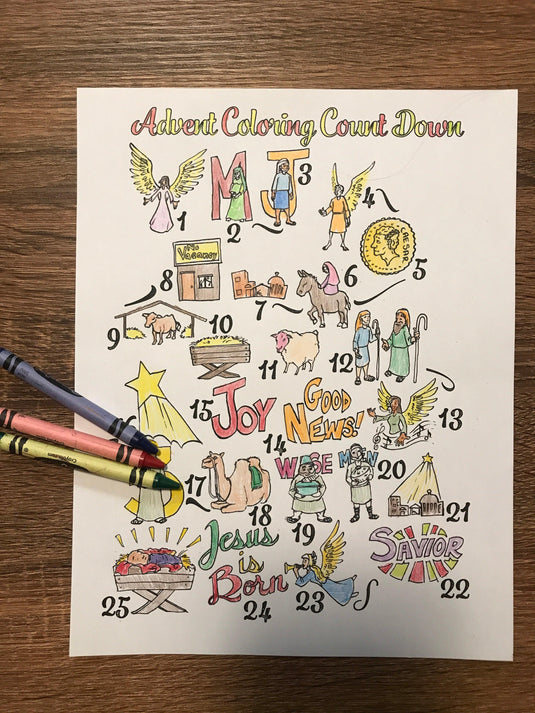 Advent Coloring Count Down
M J 3
1 2 4
No
Vacancy
CAESAR
8 6 5
7
9 10
11 12
15 JOY GOOD
NEWS! 13
14
J WISE MEN 20
17 18 19 21
Jesus
is
Born
SAVIOR
25 24 23 22
Crayola